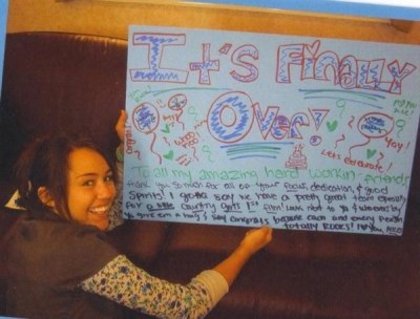 It's Finally
Over!
Yay!
Let's celebrate!
To all my amazing hard workin' friends
thank you so much for all of your focus, dedication, & good
Spirits! I gotta say we have a pretty great team especially
for a little country girl's 1st film! Look next to ya & whoever's by
ya give em a hug & say congrats because each and every person
totally ROCKS! I ♥ you,